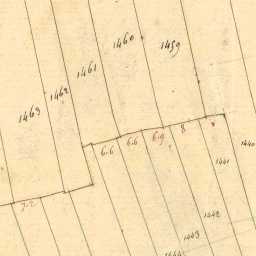 1460
1459
1461
1462
1463
6.6
6.6
6.9
8
1440
1441
7.2
1442
1443
1444